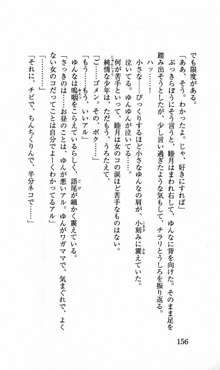 でも限度がある。
「あっそう。わかったよ。じゃ、好きにすれば」
ぶっきらぼうにそう言うと、睦月はまわれ右して、ゆんなに背を向けた。そのまま足を
踏み出そうとしたが、少し言い過ぎたような気もして、チラリとうしろを振り返る。
ハッ……。
小さな……びっくりするほど小さなゆんなの肩が、小刻みに震えていた。
泣いてる。ゆんなが、泣いてる。
何が苦手って、睦月は女のコの涙ほど苦手なものはない。
純情な少年は、もうもう、うろたえて、
「あ……ゴメン。その、ボク……」
「もう、いいアル」
ゆんなは嗚咽をこらえているらしく、語尾が細かく震えている。
「さっきのは……お昼のことは、ゆんなが悪いアル。ゆんながワガママで、気まぐれで、よく
ない女のコだってことは自分でよーくわかってるアル」
「それに、チビで、ちんちくりんで、半分ネコで……」
156